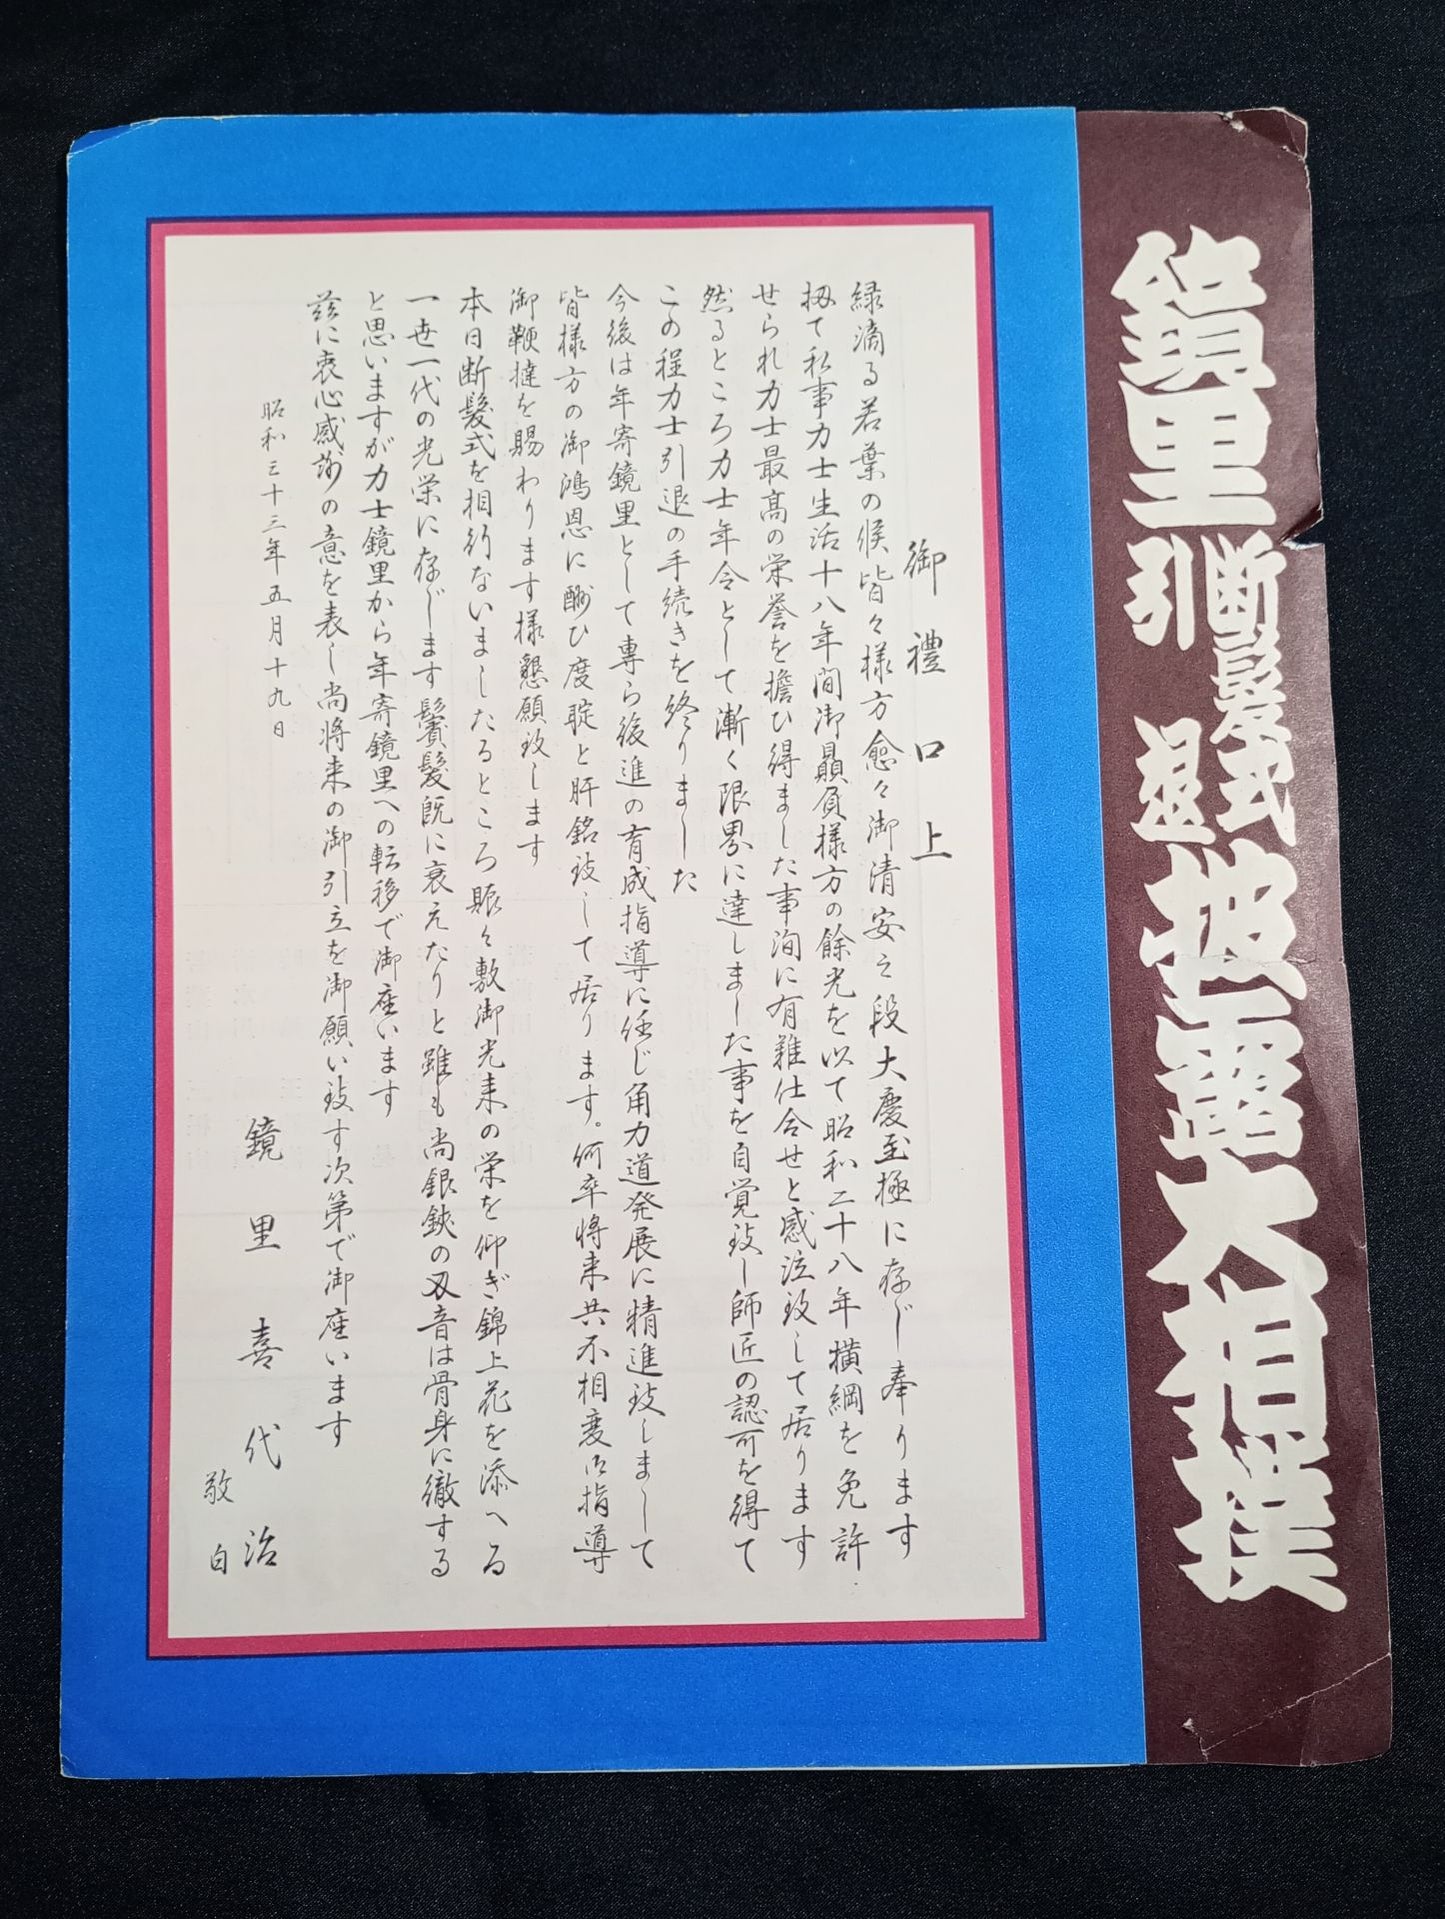 鏡里
断髪式
引退
披露大相撲
御禮口上
緑滴る若葉の候皆々様方愈々御清安之段大慶至極に存じ奉ります
扨て私事力士生活十八年間御贔屓様方の餘光を以て昭和二十八年横綱を免許
せられ力士最高の栄誉を擔ひ得ました事洵に有難仕合せと感泣致して居ります
然るところ力士年令として漸く限界に達しました事を自覚致し師匠の認可を得て
この程力士引退の手続きを終りました
今後は年寄鏡里として専ら後進の育成指導に任じ角力道発展に精進致しまして
皆様方の御鴻恩に酬ひ度聢と肝銘致して居ります。何卒将来共不相変御指導
御鞭撻を賜わります様懇願致します
本日断髪式を相行ないましたるところ賑々敷御光来の栄を仰ぎ錦上花を添へる
一世一代の光栄に存じます鬢髪既に衰えたりと雖も尚銀鋏の刄音は骨身に徹する
と思いますが力士鏡里から年寄鏡里への転移で御座います
茲に衷心感謝の意を表し尚将来の御引立を御願い致す次第で御座います
昭和三十三年五月十九日
鏡里喜代治
敬白